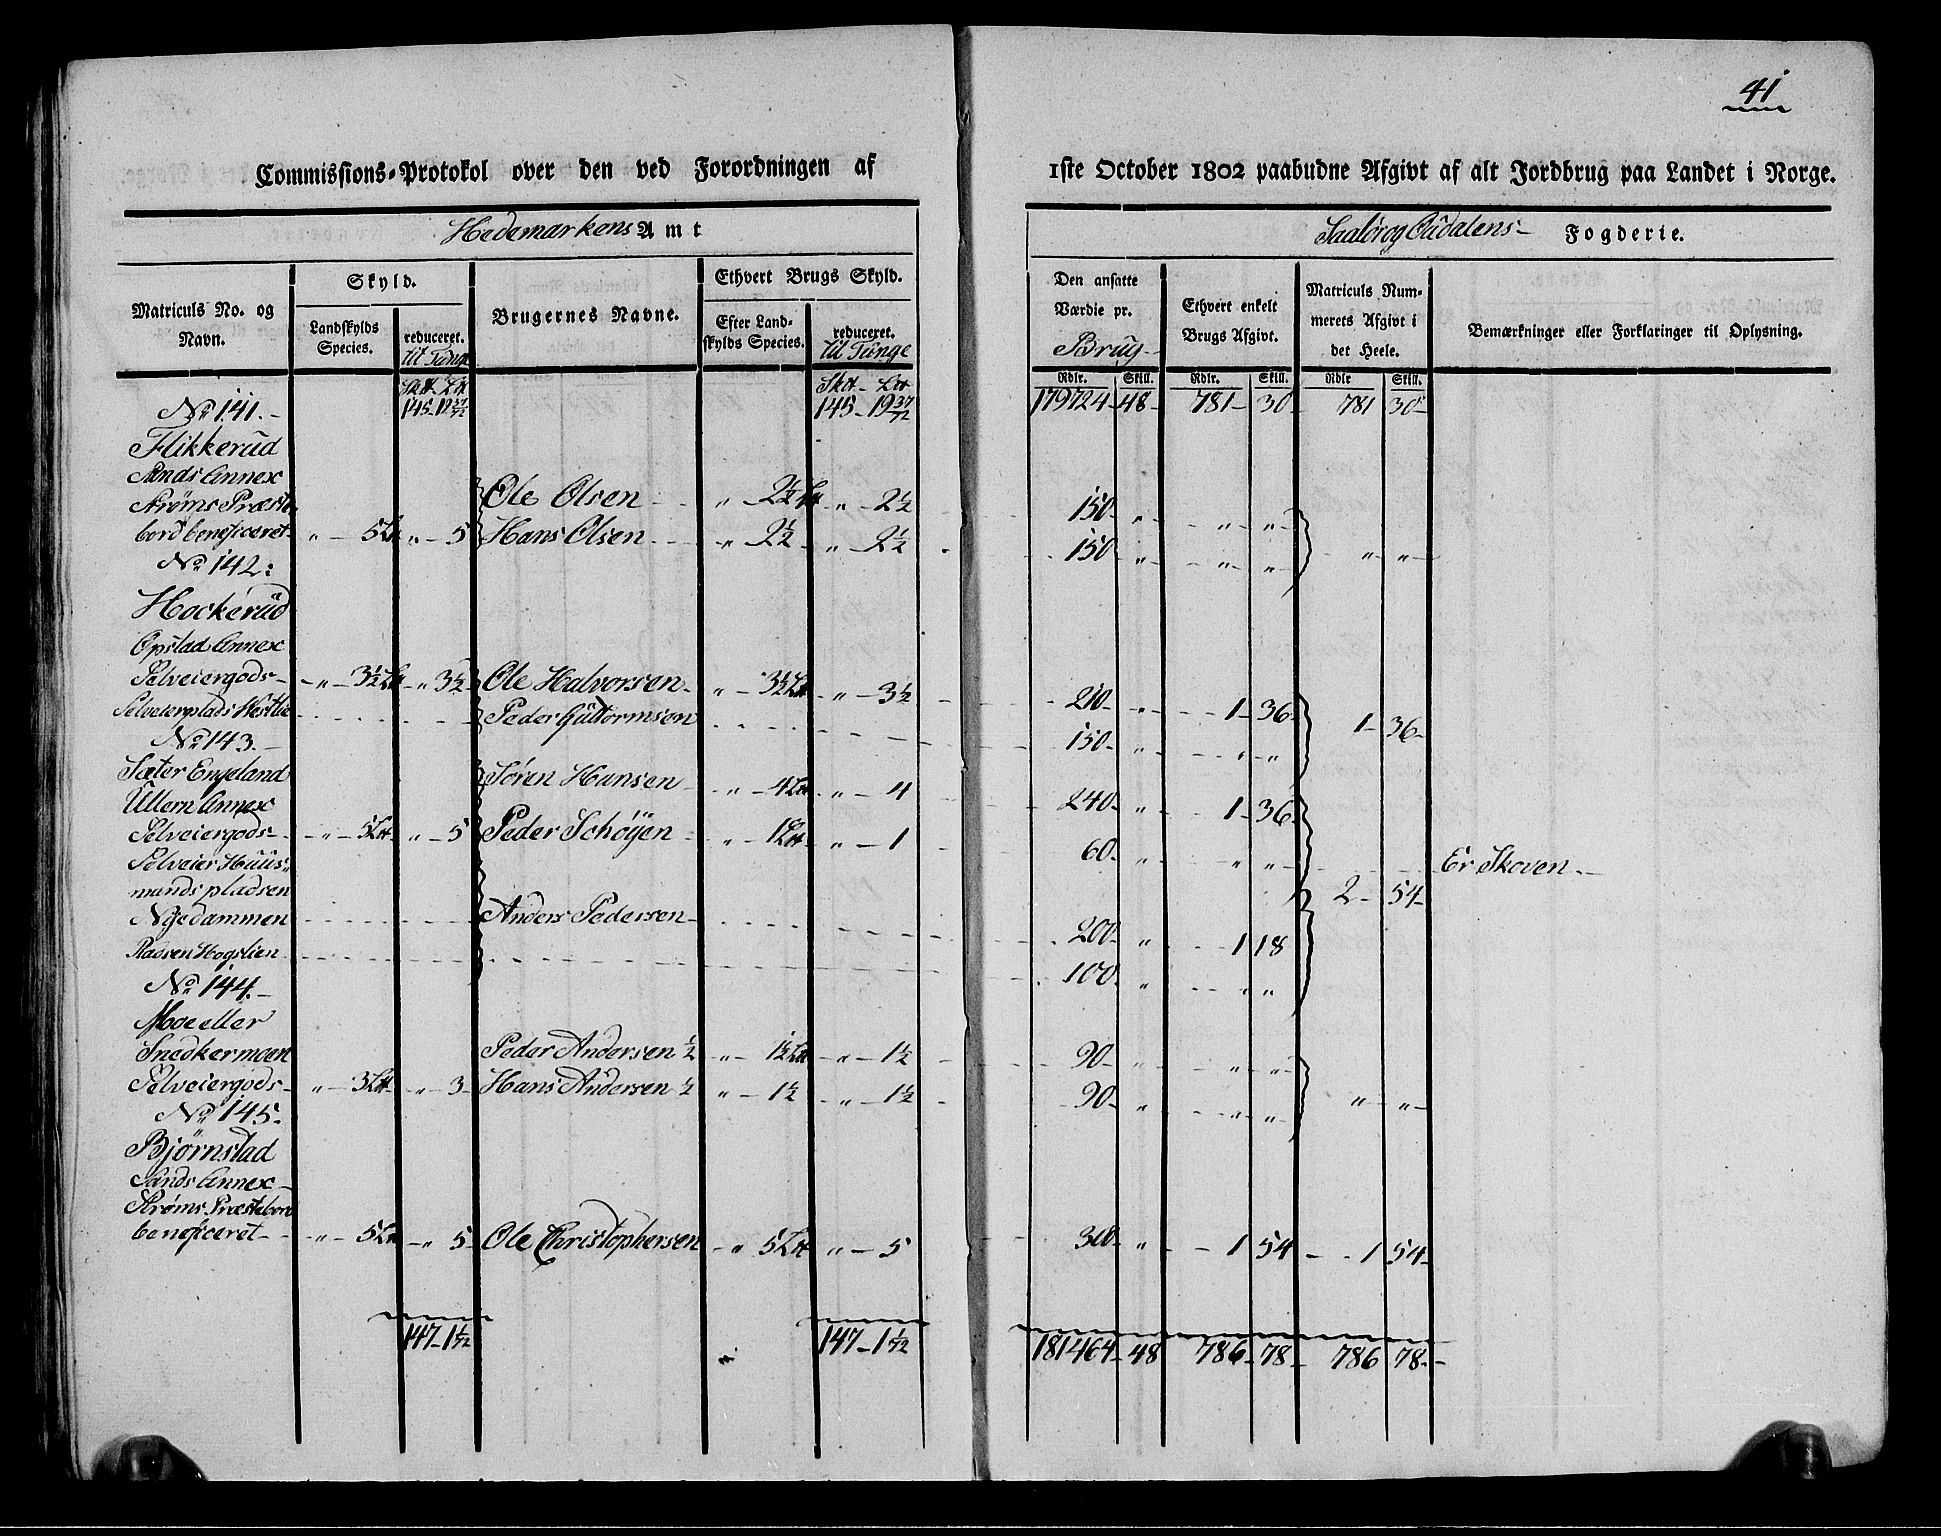 41
Commissions-Protokol over den ved Forordningen af 1ste October 1802 paabudne Afgivt af alt Jordbrug paa Landet i Norge.
Hedemarkens Amt
Saalør og Oudalens Fogderie.
Matriculs No. og Navn.
Skyld.
Landskylds Species.
reduceret. til Tunge
Brugernes Navne.
Ethvert Brugs Skyld.
Efter Landskylds Species.
reduceret. til Tunge
Den ansatte Værdie pr. Brug
Ethvert enkelt Brugs Afgivt.
Matriculs Nummerets Afgivt i det Heele.
Bemærkninger eller Forklaringer til Oplysning.
Rdlr. Skill. Rdlr. Skill. Rdlr Skill.
No 141. 145 - 19 37/72 145 - 19 37/72 179724 - 48 - 781 - 30 - 781 30
Flikkerud
Sands Annex
Strøms Præste Ole Olsen " 2½ " - 2½ 150 - " - " "
bord beneficeret " - 5 " - 5 Hans Olsen " 2½ " - 2½ 150 " " " " "
No 142:
Hockerud
Opstad Annex
Selveiergods " - 3½ " 3½ Ole Halvorsen " - 3½ " - 3½ 210 - " - 1 - 36 1 - 36
Selveierplads Westlie Peder Guttormsen 150 - " - " "
No 143.
Sæter Engeland Søren Hansen " - 4 " - 4 240 - " - 1 - 36
Ullern Annex
Selveiergods " - 5 " - 5 Peder Schøyen " - 1 " - 1 60 - " " " Er Skoven
Selveier Huus-
mands pladsen 2 - 54
Nyedammen Anders Pedersen 200 - " - 1 18
Pladsen Hogslien 100 - " - " "
No 144.
Moe eller
Snedkermoen Peder Andersen ½ " - 1½ " - 1½ 90 - " - " "
Selveiergods " - 3 " - 3 Hans Andersen ½ " - 1½ " - 1½ 90 - " - " " " "
No 145.
Bjørnstad
Sands Annex
Strøms Præstebord
beneficeret " - 5 " 5 Ole Christophersen " 5 " - 5 300 " - 1 54 - 1 54
147 - 1 1/72 147 - 1 1/72 181464 - 48 786 - 78 - 786 78